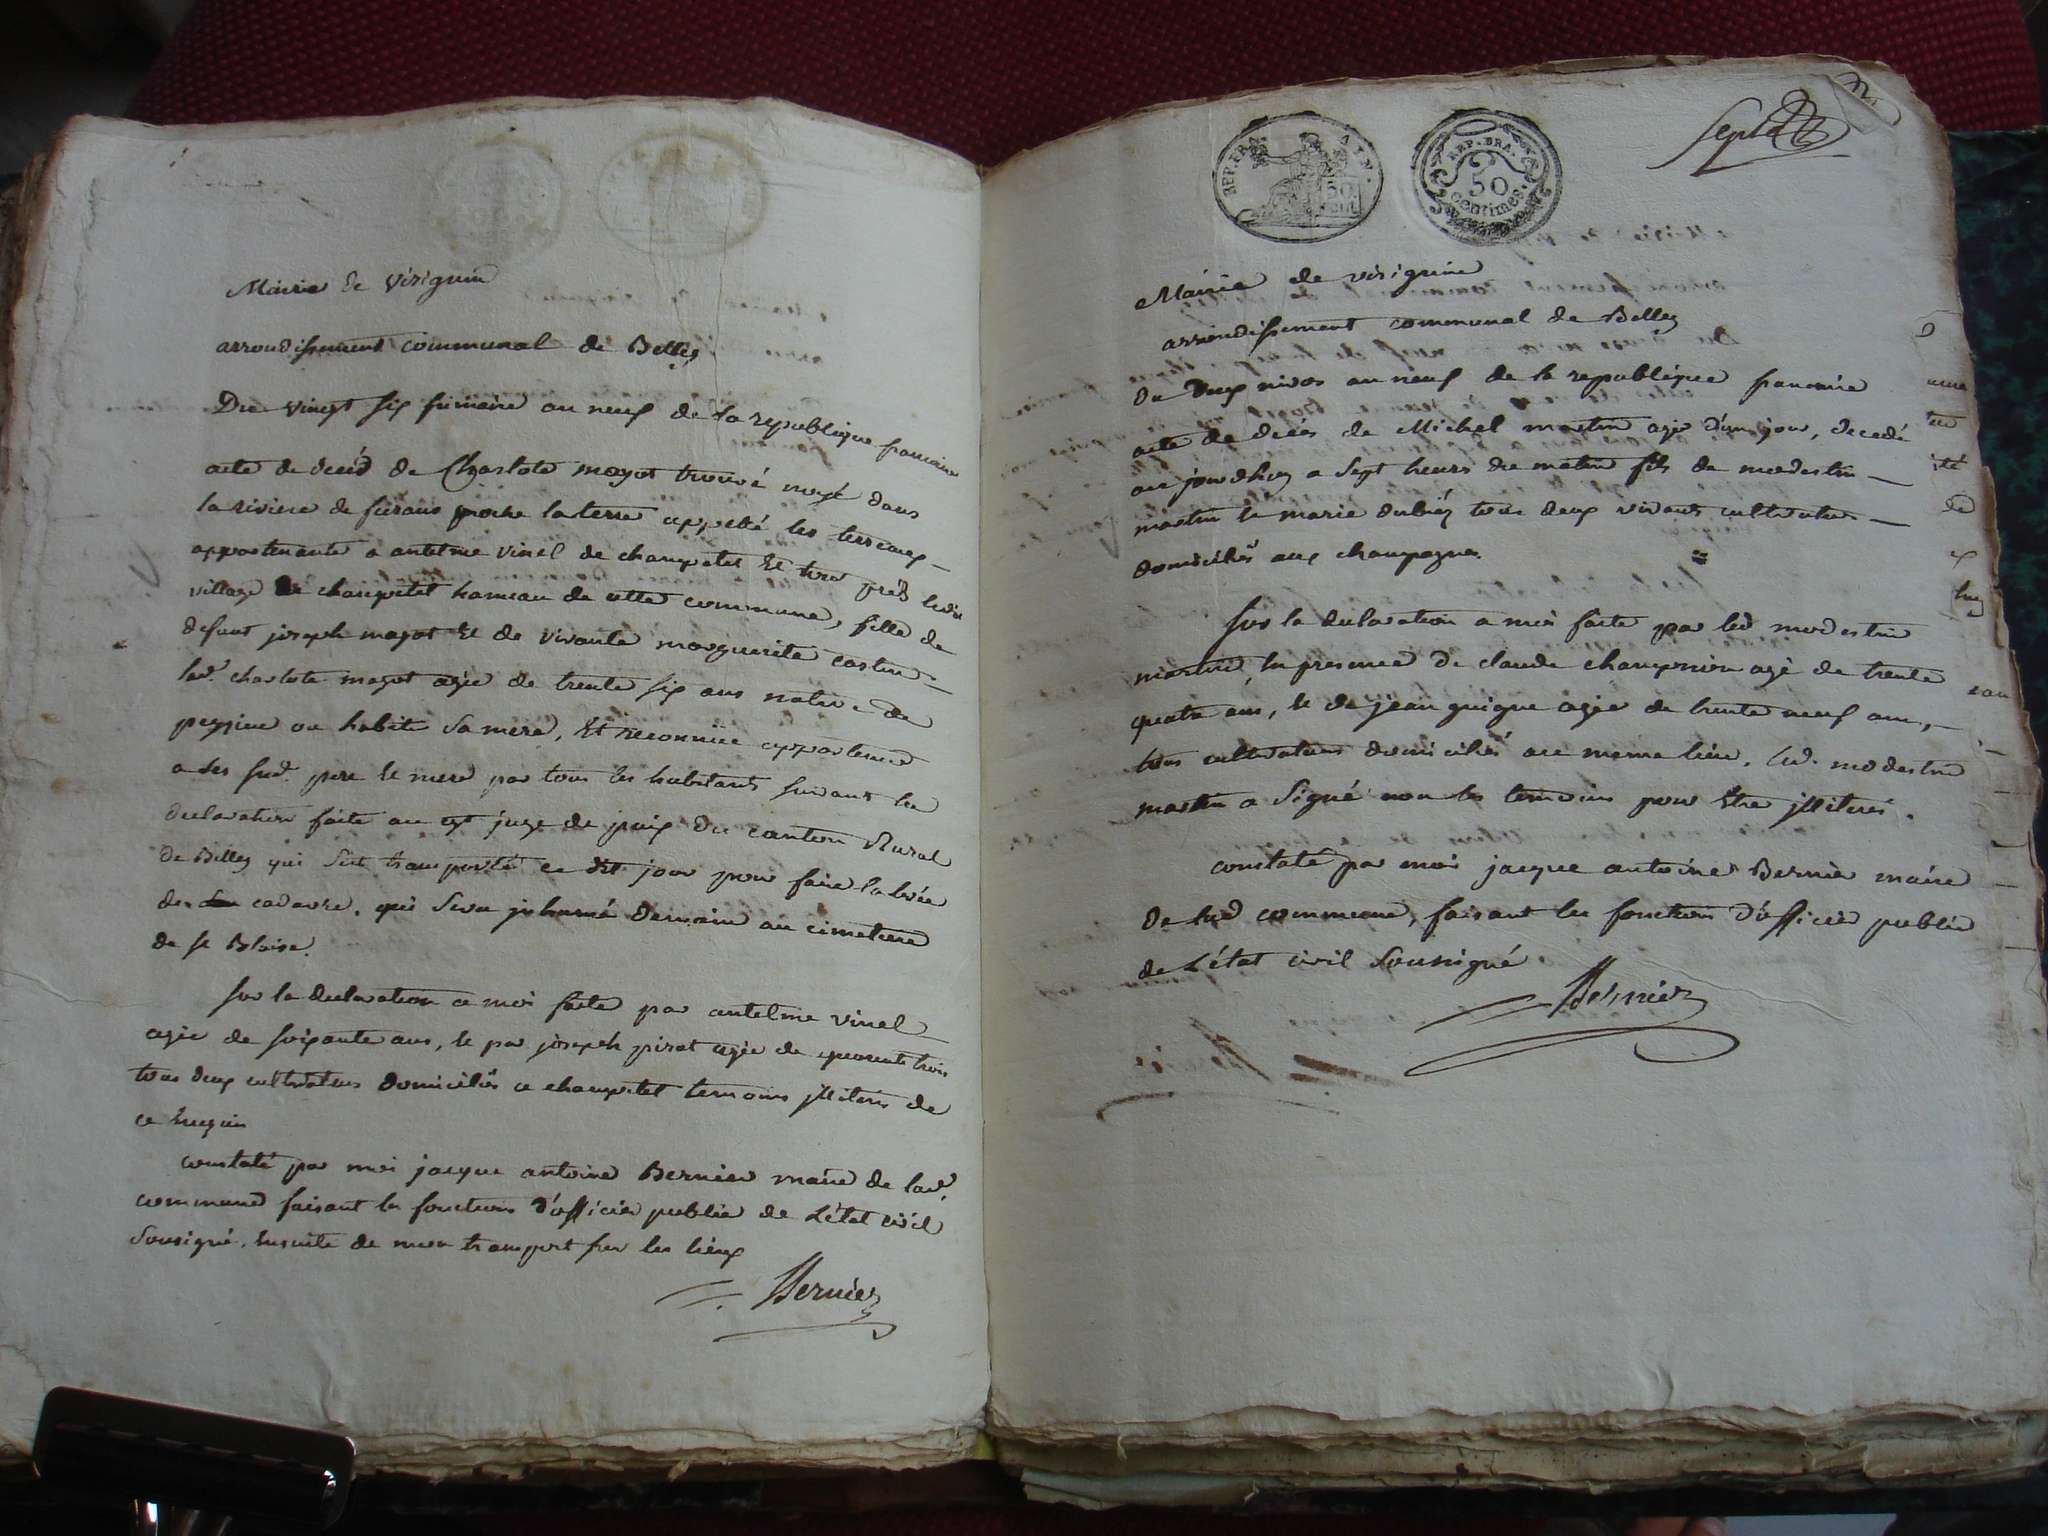 Mairie de virignin
arrondissement communal de Belley
Du vingt six frimaire an neuf de la republique francaise
acte de decés de Charlote mayot trouvé noyé dans
la riviere de furans proche la terre appellé les terreaux
appartenante a antelme vinel de champetel et tiré près ledit
village de champetel hameau de cette commune, fille de
defunt joseph mayot et de vivante marguerite
lad. charlote mayot agée de trente six ans native de
peyzieu ou habite sa mere, et reconnue appartenir
a ses sud. pere et mere par tous les habitants suivant la
declaration faite au cyt juge de paix du canton Rural
de Belley qui s'est transporté ce dit jour pour faire la levée
de cadavre, qui sera inhumé demain au cimetiere
de st Blaise.
sur la declaration a moi faite par antelme vinel
agée de soixante ans, et par joseph pirot agée de quarente trois
tous deux cultivateurs domiciliés a champetel temoins illiterés de
ce enquis
constaté par moi jacque antoine Bernier maire de lad.
commune faisant les fonctions d'officier public de L'état civil
Sousigné. ensuite de mon transport sur les lieux
Bernier
REP. FRA.
50
REP. FRA.
50
centimes.
sept
Mairie de virignin
arrondissement communal de Belley
du deux nivos an neuf de la republique francaise
acte de décés de Michel martin agé d'un jour, decedé
au jourdhuy a sept heurs du matin fils de modestin
martin et marie dubiez tous deux vivants cultivateurs
domiciliés aux champagne.
sur la declaration a moi faite par led modestin
martin, en presence de claude champnion agé de trente
quatre ans, et de jean guigue agée de trente neuf ans,
tous cultivateurs domiciliés au meme lieu, led. modestin
martin a signé non les temoins pour être illiterés.
constaté par moi jacque antoine Bernier maire
de lad commune, faisant les fonctions d'officier public
de L'état civil sousigné
Bernier